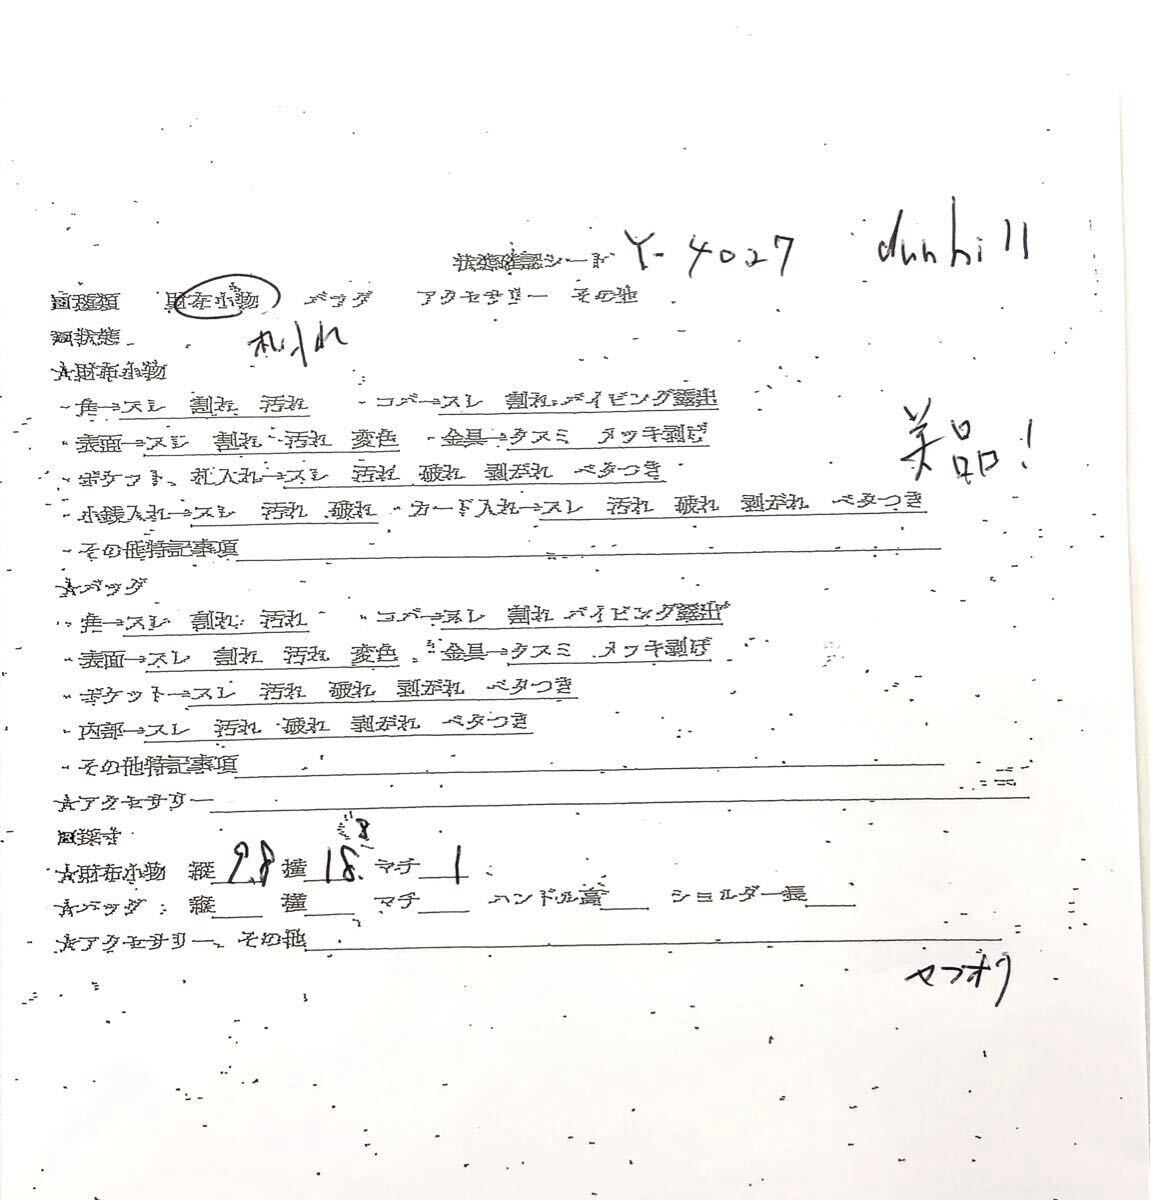 状態確認シート Y-4027 dunhill
■種類 財布小物 バッグ アクセサリー その他
■状態 札入れ
★財布小物
・角→スレ 割れ 汚れ ・コバ→スレ 割れ パイピング露出
・表面→スレ 割れ 汚れ 変色 ・金具→クスミ メッキ剥げ
美品!
・ポケット、札入れ→スレ 汚れ 破れ 剥がれ ベタつき
・小銭入れ→スレ 汚れ 破れ ・カード入れ→スレ 汚れ 破れ 剥がれ ベタつき
・その他特記事項
★バッグ
・角→スレ 割れ 汚れ ・コバ→スレ 割れ パイピング露出
・表面→スレ 割れ 汚れ 変色 ・金具→クスミ メッキ剥げ
・ポケット→スレ 汚れ 破れ 剥がれ ベタつき
・内部→スレ 汚れ 破れ 剥がれ ベタつき
・その他特記事項
★アクセサリー
■採寸
★財布小物 縦 9.8 横 18.8 マチ 1
★バッグ 縦 横 マチ ハンドル高 ショルダー長
★アクセサリー、その他
ヤフオク